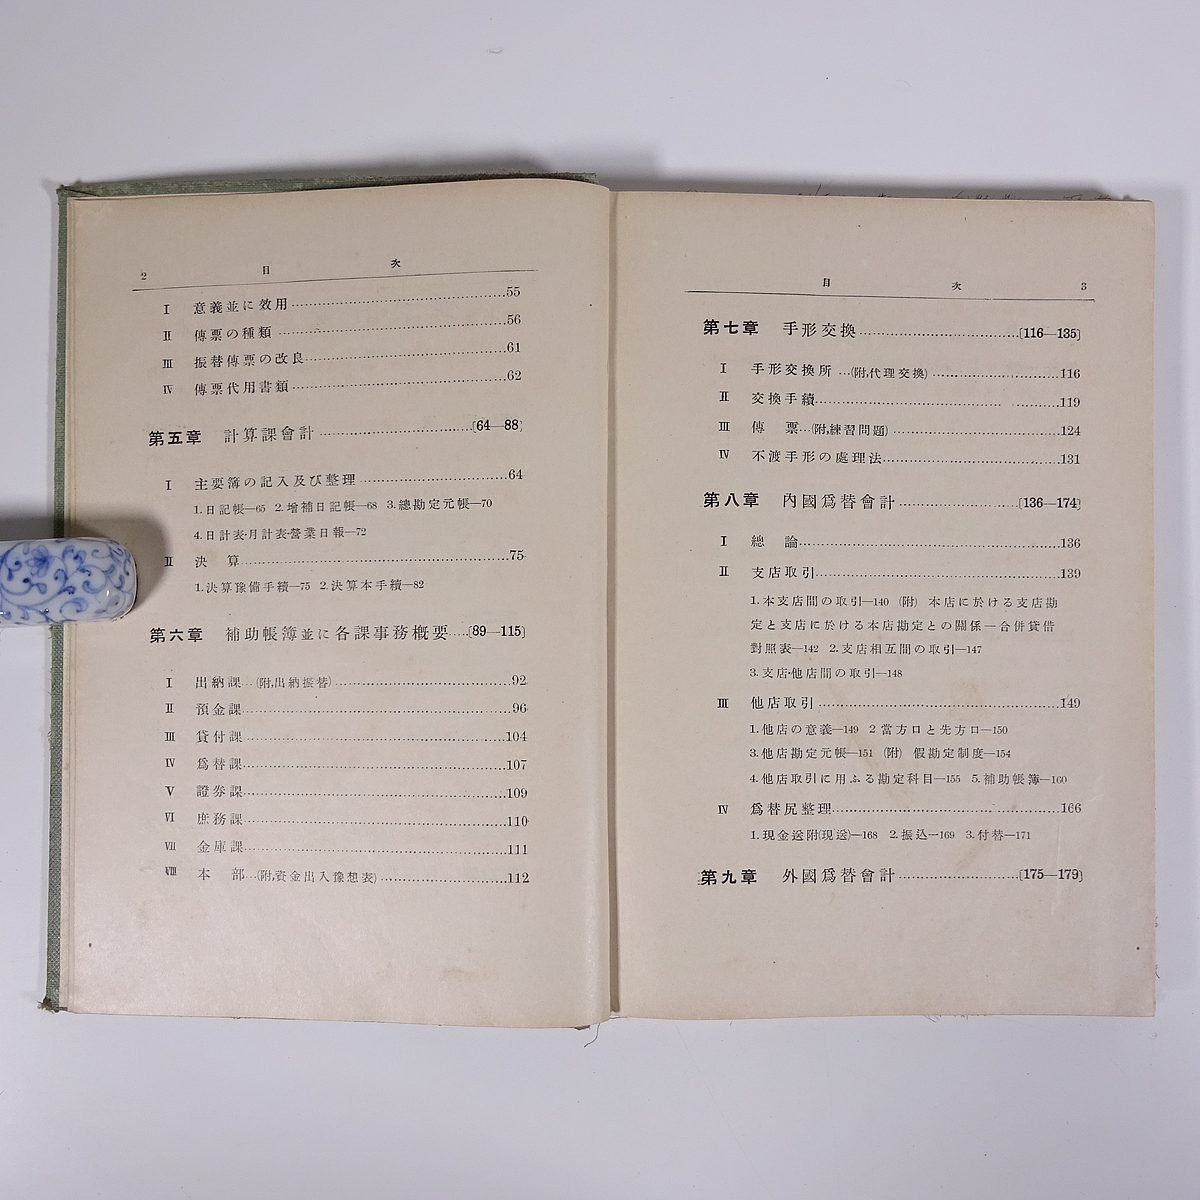 2 目 次
I 意義並に效用……55
II 傳票の種類……56
III 振替傳票の改良……61
IV 傳票代用書類……62
第五章 計算課會計……〔64—88〕
I 主要簿の記入及び整理……64
1.日記帳—65 2.增補日記帳—68 3.總勘定元帳—70
4.日計表・月計表・營業日報—72
II 決 算……75
1.決算豫備手續—75 2.決算本手續—82
第六章 補助帳簿並に各課事務槪要……〔89—115〕
I 出納課…(附,出納振替)……92
II 預金課……96
III 貸付課……104
IV 爲替課……107
V 證券課……109
VI 庶務課……110
VII 金庫課……111
VIII 本 部…(附,資金出入豫想表)……112
目 次 3
第七章 手形交換……〔116—135〕
I 手形交換所…(附,代理交換)……116
II 交換手續……119
III 傳 票…(附,練習問題)……124
IV 不渡手形の處理法……131
第八章 內國爲替會計……〔136—174〕
I 總 論……136
II 支店取引……139
1.本支店間の取引—140 (附) 本店に於ける支店勘
定と支店に於ける本店勘定との關係—合併貸借
對照表—142 2.支店相互間の取引—147
3.支店・他店間の取引—148
III 他店取引……149
1.他店の意義—149 2 當方口と先方口—150
3.他店勘定元帳—151 (附) 假勘定制度—154
4.他店取引に用ふる勘定科目—155 5.補助帳簿—160
IV 爲替尻整理……166
1.現金送附(現送)—168 2.振込—169 3.付替—171
第九章 外國爲替會計……〔175—179〕